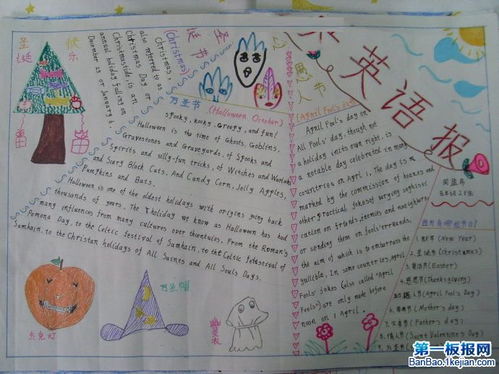 英语报
圣诞 快乐
圣诞节
(Christmas)
Christmas,
also referred to as
Christmas Day or
Christmastide, is an
annual holiday falling on
December 25 or January 7,
万圣节
(Halloween October)
Spooky, kooky, creepy, and fun!
Halloween is the time of Ghosts, Goblins,
Gravestones and Graveyards, of Spooks and
Spirits and silly-fun tricks, of Witches and Warlocks
and Scary Black Cats. And Candy Corn, Jelly Apples,
Pumpkins and Bats.
Halloween is one of the oldest holidays with origins going back
thousands of years. The holiday we know as Halloween has had
many influences from many cultures over the centuries. From the Roman's
Pomona Day, to the Celtic festival of Samhain, to the Celtic festival of
Samhain, to the Christian holidays of All Saints and All Souls Days.
杰克灯
愚人节
(April Fool's Day)
April Fool's day or
All Fool's day, though not
a holiday in its own right, is
a notable day celebrated in many
countries on April 1. The day is
marked by the commission of hoaxes and
other practical jokes of varying sophisti
cation on friends, enemies and neighbors
or sending them on fools' errands,
the aim of which is to embarrass the
gullible. In some countries, April
Fools' Jokes (also called "April
Fools") are only made before
noon on 1 April.
1. (New Year)
2. 圣诞节 (Christmas)
3. 复活节 (Easter)
4. 感恩节 (Thanksgiving)
5. 愚人节 (April Fool's Day)
6. 母亲节 (Mother's day)
7. 父亲节 (Father's day)
8. 情人节 (Saint Valentine's Day)
9. 万圣节
第一板报网
www.1kejian.com
BanBao.1kejian.com